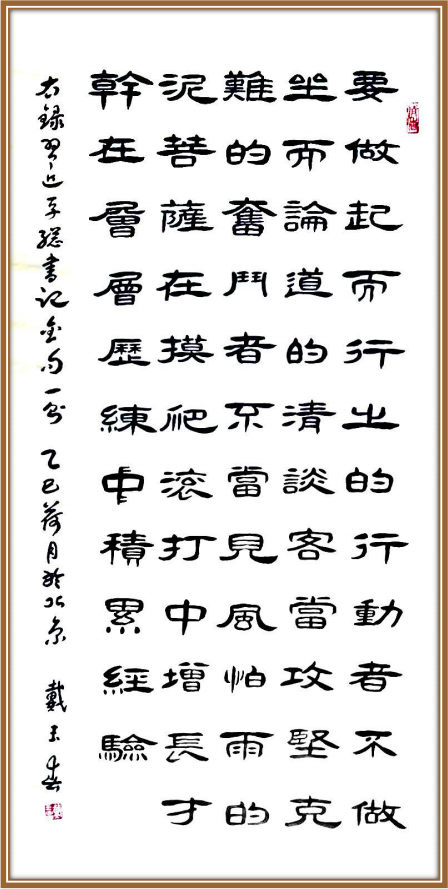 要做起而行之的行動者不做
坐而論道的清談客當攻堅克
難的奮鬥者不當見風怕雨的
泥菩薩在摸爬滾打中增長才
幹在層層歷練中積累經驗
右錄習近平總書記金句一則 乙巳荷月於北京 戴春